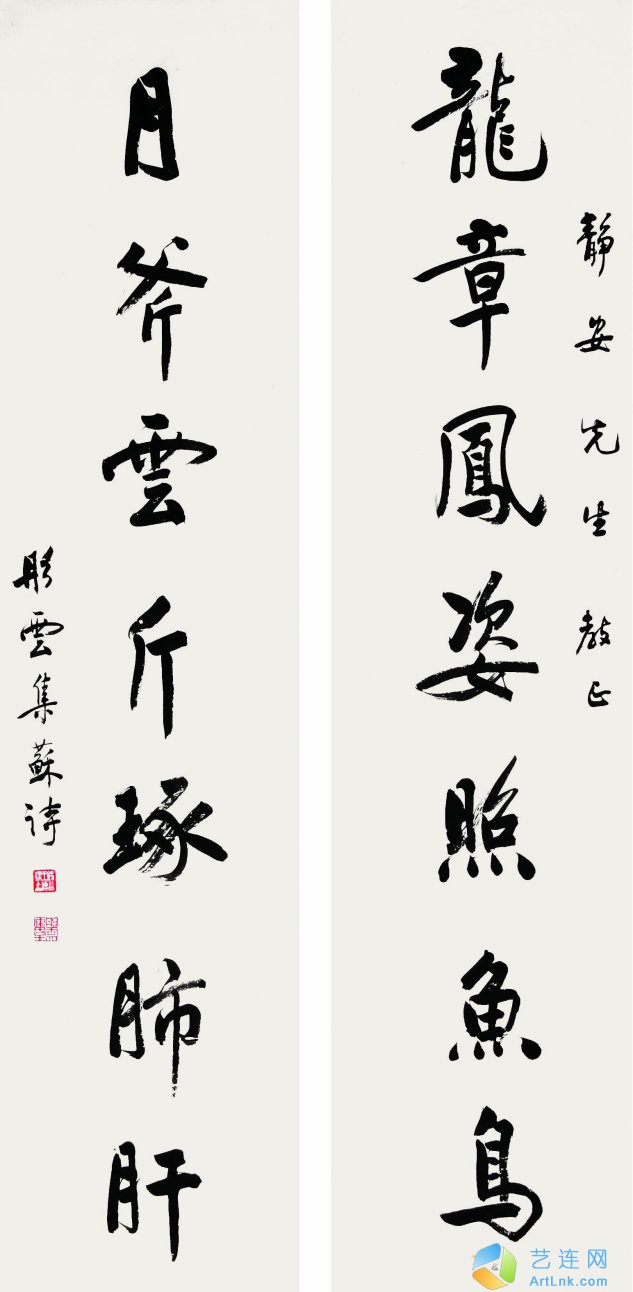 靜安先生教正
龍章鳳姿照魚鳥
月斧雲斤琢肺肝
彤雲集蘇詩
艺连网
ArtLnk.com